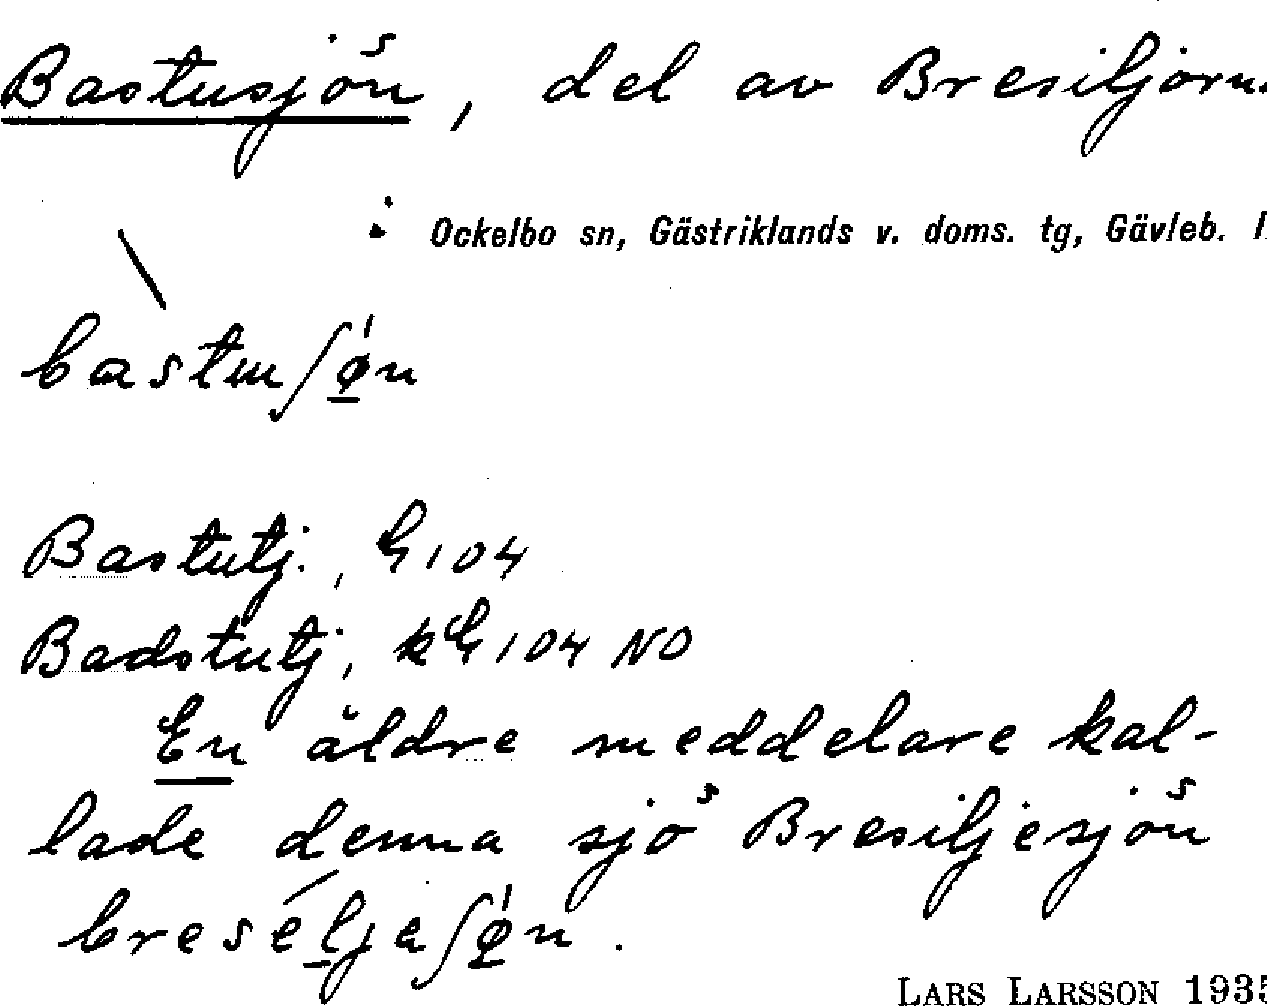 Bastusjön, del av Bresiljorn.
Ockelbo sn, Gästriklands v. doms. tg, Gävleb. l
bastuʃǿ̱n
Bastutj., G 104
Badstutj, kG 104 NO
En äldre meddelare kal-
lade denna sjö Bresiljesjön
breséḻjeʃǿ̱n.
LARS LARSSON 1935